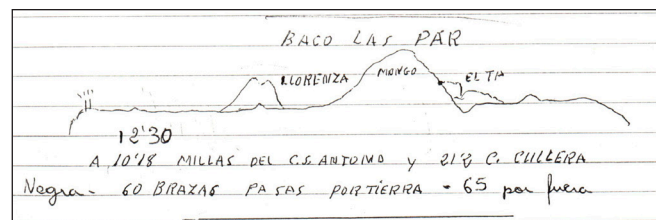 BACO LAS PAR
LLORENZA MONGO EL TP
12'30
A 10'18 MILLAS DEL C.S. ANTONIO y 21'2 C. CULLERA
Negra - 60 BRAZAS PASAS POR TIERRA - 65 por fuera